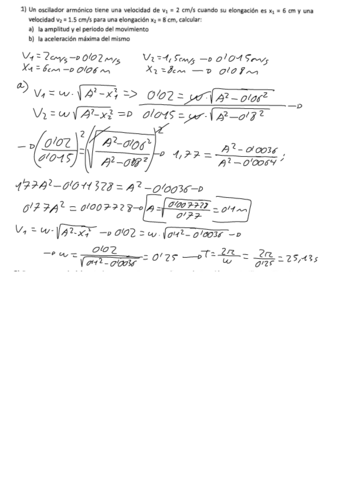 1) Un oscilador armónico tiene una velocidad de v₁ = 2 cm/s cuando su elongación es x₁ = 6 cm y una
velocidad v₂ = 1.5 cm/s para una elongación x₂ = 8 cm, calcular:
a) la amplitud y el periodo del movimiento
b) la aceleración máxima del mismo
V₁ = 2cm/s → 0'02 m/s V₂ = 1,5cm/s → 0'015 m/s
X₁ = 6cm → 0'06 m X₂ = 8cm → 0'08 m
a) V₁ = w · √(A² − x₁²) => 0'02 = w · √(A² − 0'06²)
V₂ = w √(A² − x₂²) => 0'015 = w · √(A² − 0'8²) →
→ (0'02/0'015)² = (√((A² − 0'06²)/(A² − 0'08²)))² → 1,77 = (A² − 0'0036)/(A² − 0'0064);
1'77A² − 0'011328 = A² − 0'0036 →
0'77A² = 0'007728 → A = √(0'007728/0'77) = 0'1 m
V₁ = w · √(A² − x₁²) → 0'02 = w · √(0'1² − 0'0036) →
→ w = 0'02/√(0'1² − 0'0036) = 0'25 → T = 2π/w = 2π/0'25 = 25,13 s